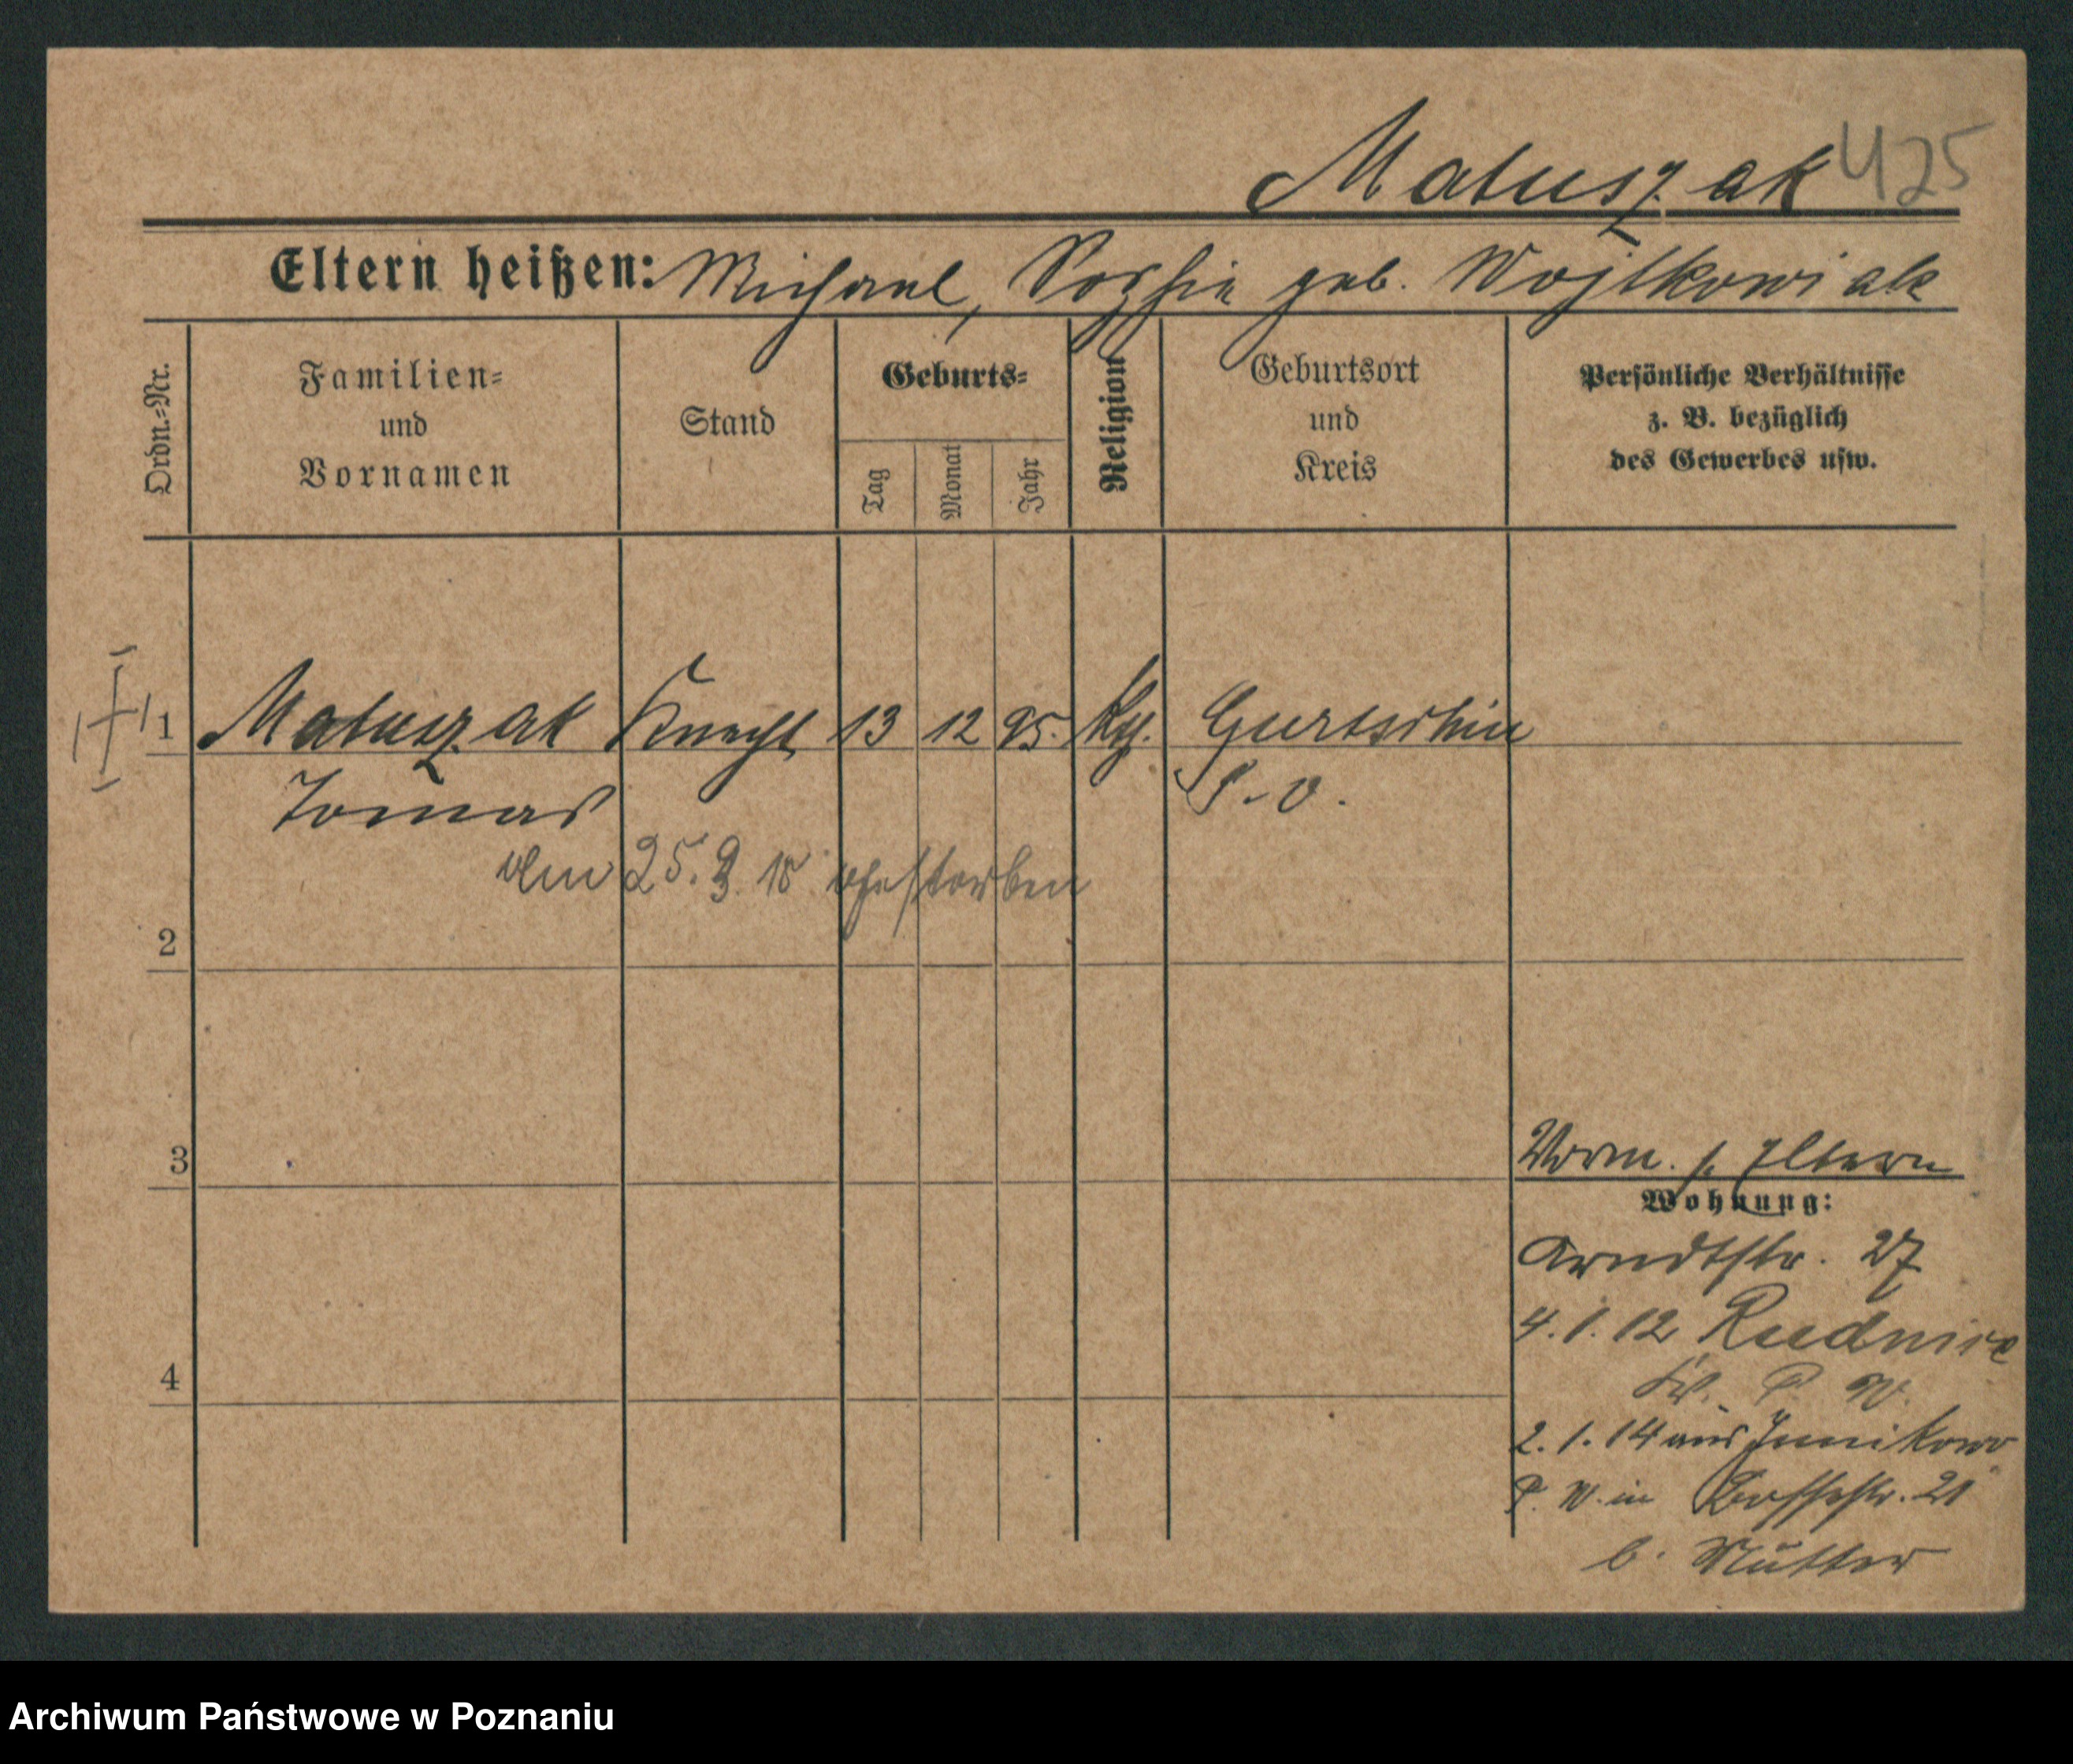 Matuszak 425
Eltern heißen: Michael, Sophie geb. Wojtkowiak
Ordn.-Nr.
Familien-
und
Vornamen
Stand
Geburts-
Tag
Monat
Jahr
Religion
Geburtsort
und
Kreis
Persönliche Verhältnisse
z. B. bezüglich
des Gewerbes usw.
1 Matuszak Knecht 13 12 95. Kth. Gurtschin
Tomas P.-O.
am 25. 9. 18 gestorben
2
3
Vorm. s. Eltern
Wohnung:
Arndtstr. 27
4. 1. 12 Rudnicze
Kr. P. W.
4
2. 1. 14 aus Junikowo
P. W. in Bossestr. 21
b. Mutter
Archiwum Państwowe w Poznaniu